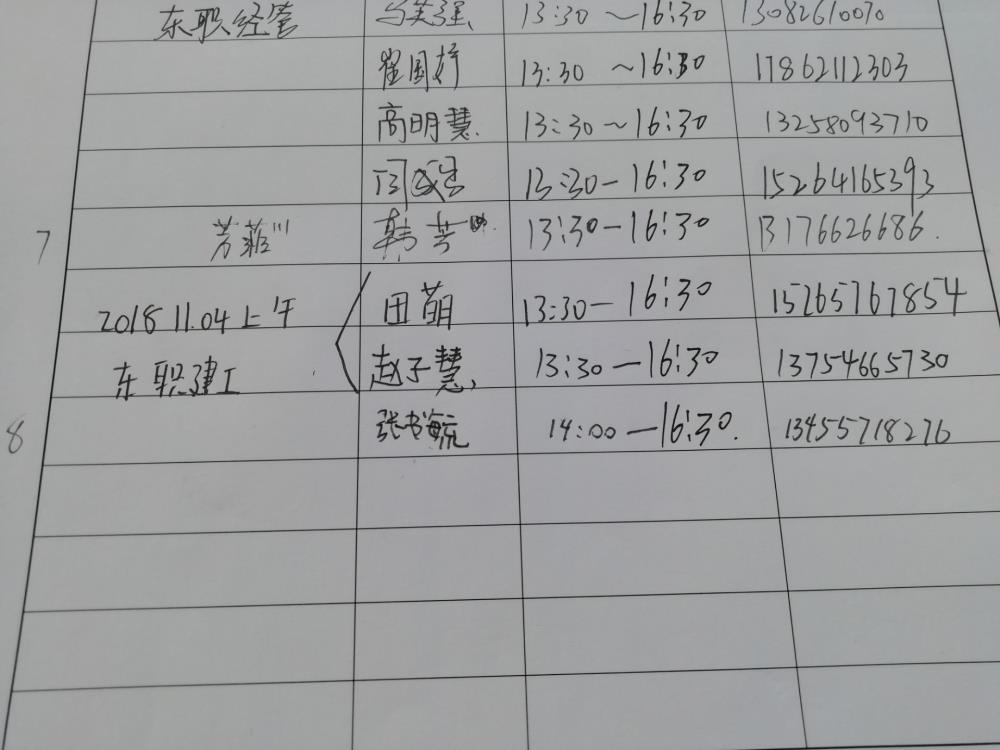 东职经管 马英强 13:30～16:30 13082610070
翟国婷 13:30 ～16:30 17862112303
高明慧. 13:30～16:30 13258093710
13:30-16:30 15264165393
7 芳菲 韩芳 13:30-16:30 13176626686.
2018 11.04上午 田萌 13:30-16:30 15265767854
东职建工 赵子慧、 13:30-16:30 13754665730
8 张书毓 14:00-16:30. 13455718276